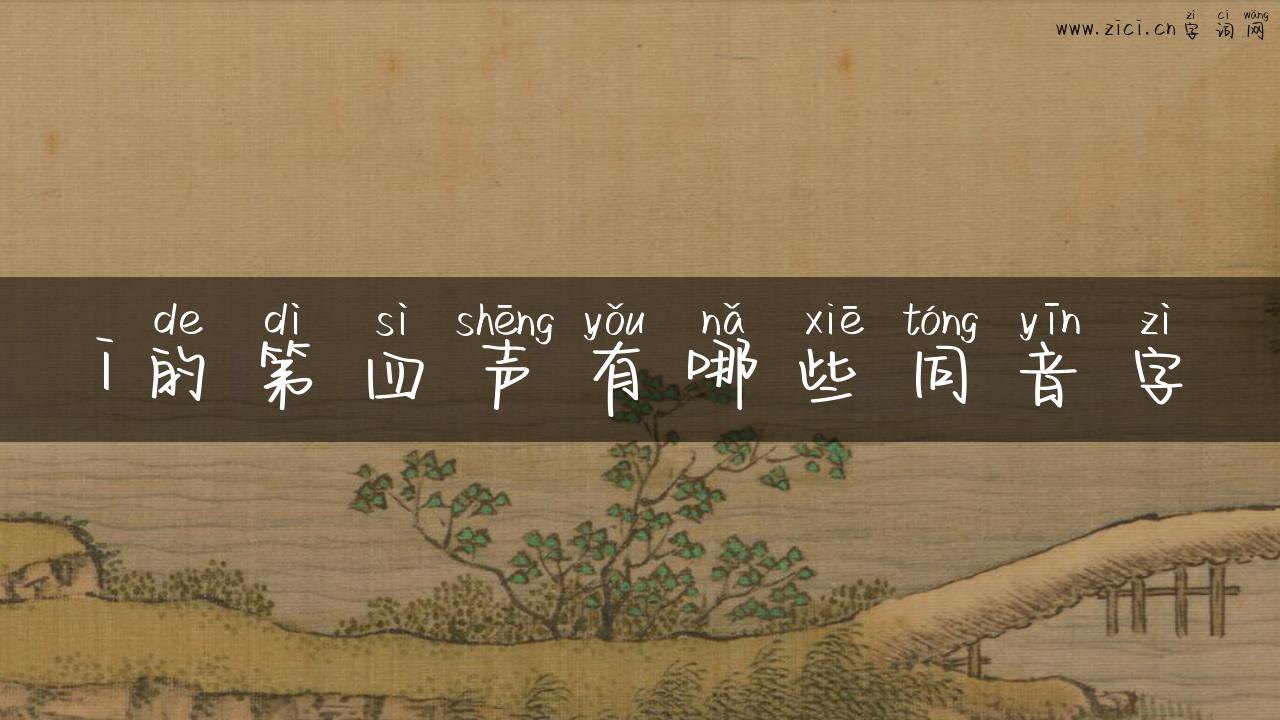 zì cí wǎng
www.zici.cn 字 词 网
de dì sì shēng yǒu nǎ xiē tóng yīn zì
ī 的 第 四 声 有 哪 些 同 音 字